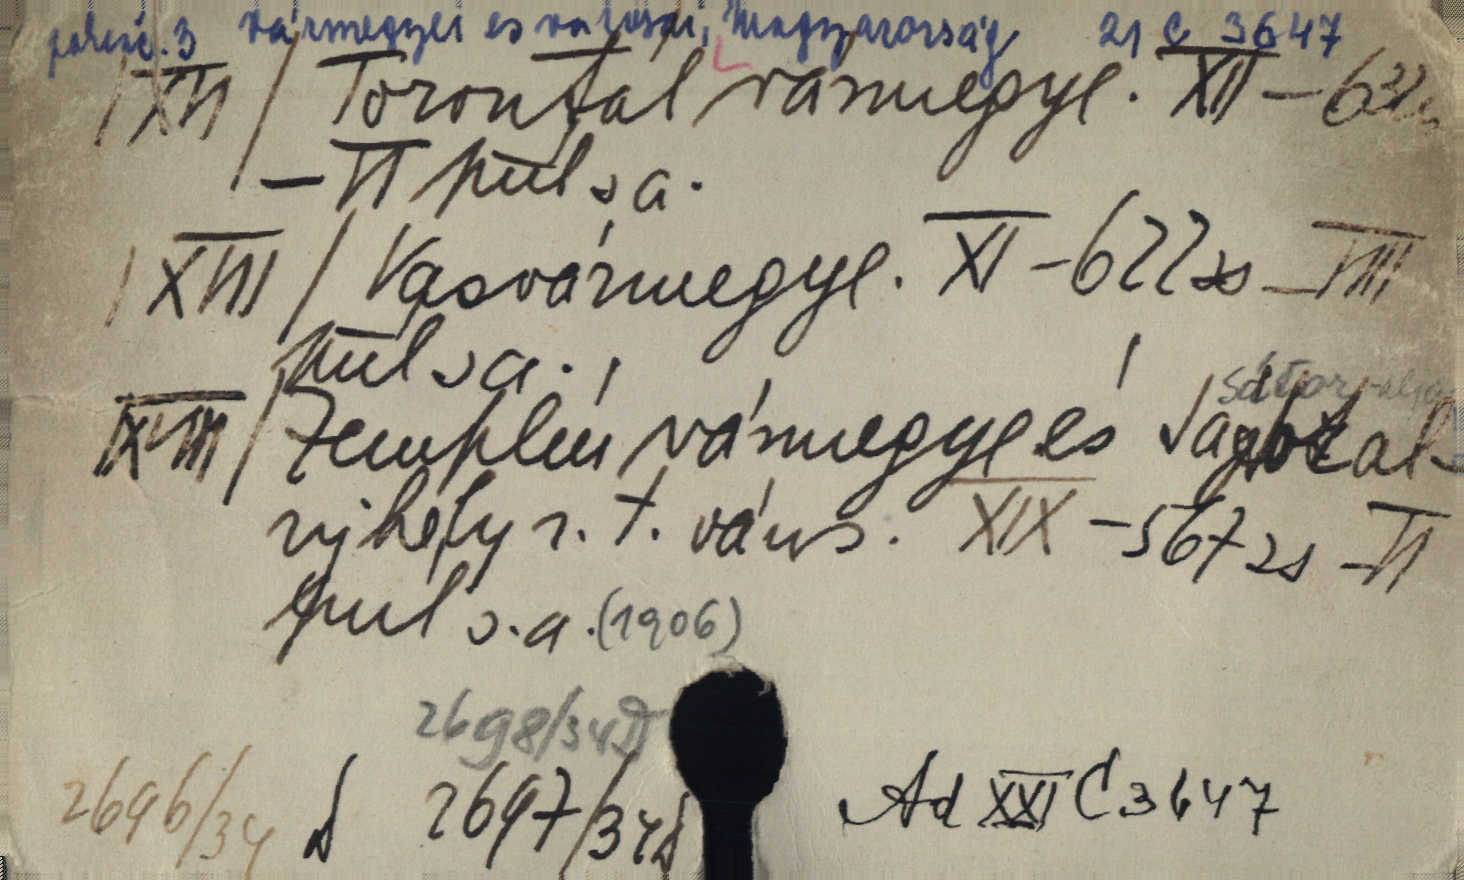 vármegyei és városai, Magyarország 21 C 3647
/XVI/ Torontál vármegye. XII-632
-VI pul s a.
/XVII/ Vasvármegye. XI-622 s -VIII
pul s a.
sátor-alja
XVIII/ Zemplén vármegye és Sátoral-
ujhely r. t. város. XIX -567 2s -VI
pul s. a. (1906)
2698/34D
2696/34 D 2697/34D Ad XXI C 3647